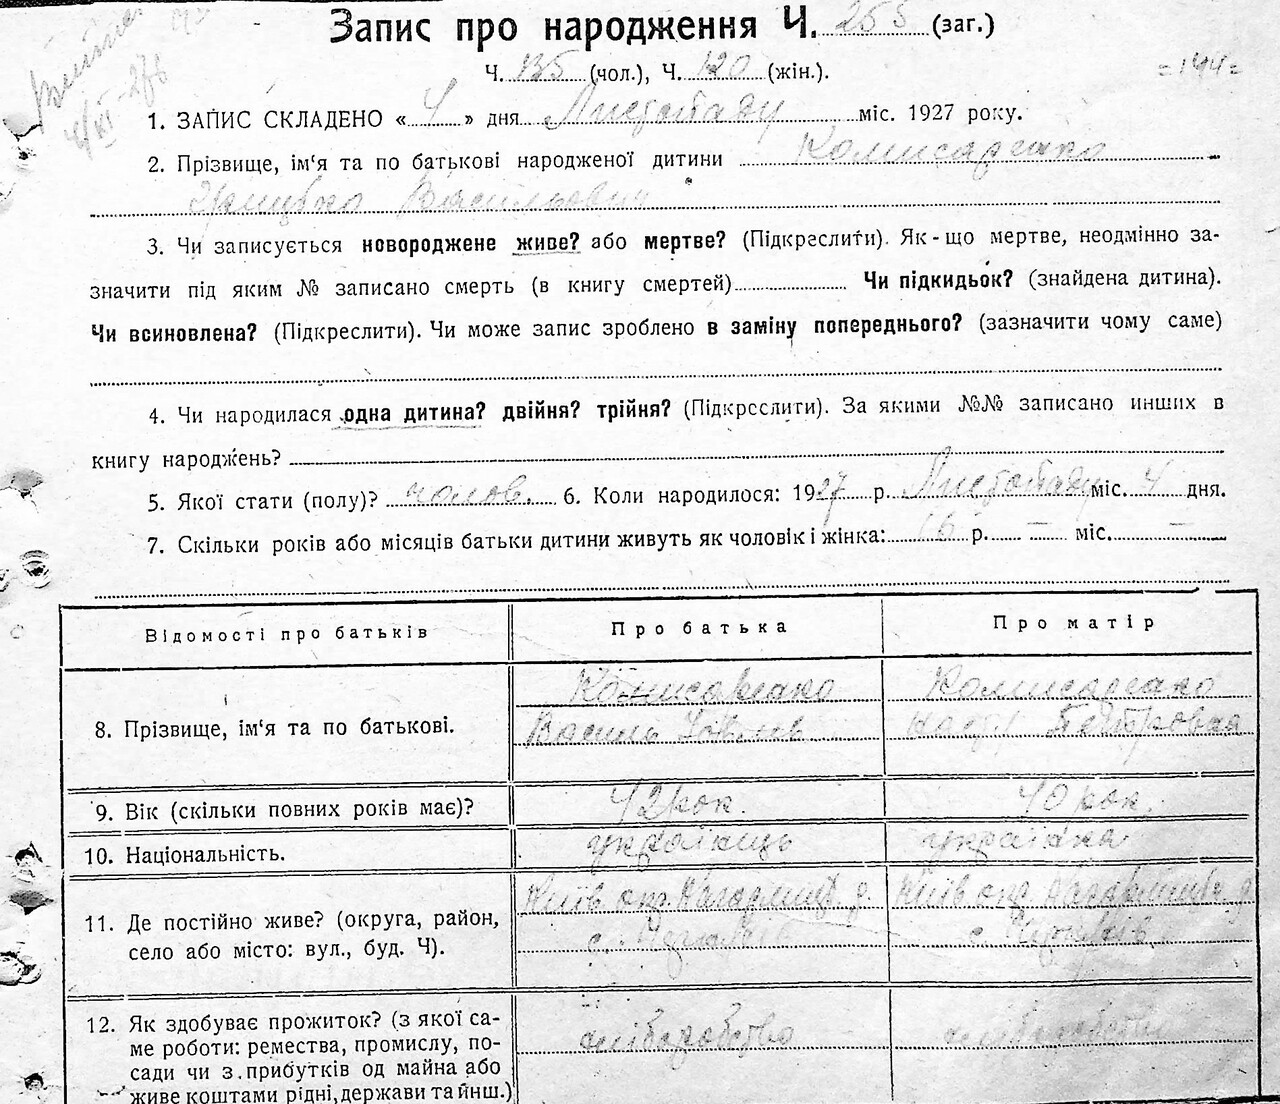 Запис про народження Ч. 255 (заг.)
Ч. 135 (чол.), Ч. 120 (жін.).
=144=
1. ЗАПИС СКЛАДЕНО «4» дня Листопаду міс. 1927 року.
2. Прізвище, ім'я та по батькові народженої дитини Комисаренко
Васильович
3. Чи записується новороджене живе? або мертве? (Підкреслити). Як-що мертве, неодмінно за-
значити під яким № записано смерть (в книгу смертей) Чи підкидьок? (знайдена дитина).
Чи всиновлена? (Підкреслити). Чи може запис зроблено в заміну попереднього? (зазначити чому саме)
4. Чи народилася одна дитина? двійня? трійня? (Підкреслити). За якими №№ записано инших в
книгу народжень?
5. Якої стати (полу)? чолов. 6. Коли народилося: 1927 р. Листопаду міс. 4 дня.
7. Скільки років або місяців батьки дитини живуть як чоловік і жінка: 16 р. — міс. —
Відомості про батьків Про батька Про матір
Комисаренко Комисаренко
8. Прізвище, ім'я та по батькові. Василь Петровна
9. Вік (скільки повних років має)? 42 рок. 40 рок.
10. Національність. українць українка
11. Де постійно живе? (округа, район, Київ окр. Кагарлицьк. р. Київ окр. Кагарлицьк. р.
село або місто: вул., буд. Ч). с. с.
12. Як здобуває прожиток? (з якої са- хліборобство хліборобство
ме роботи: ремества, промислу, по-
сади чи з прибутків од майна або
живе коштами рідні, держави та инш.)